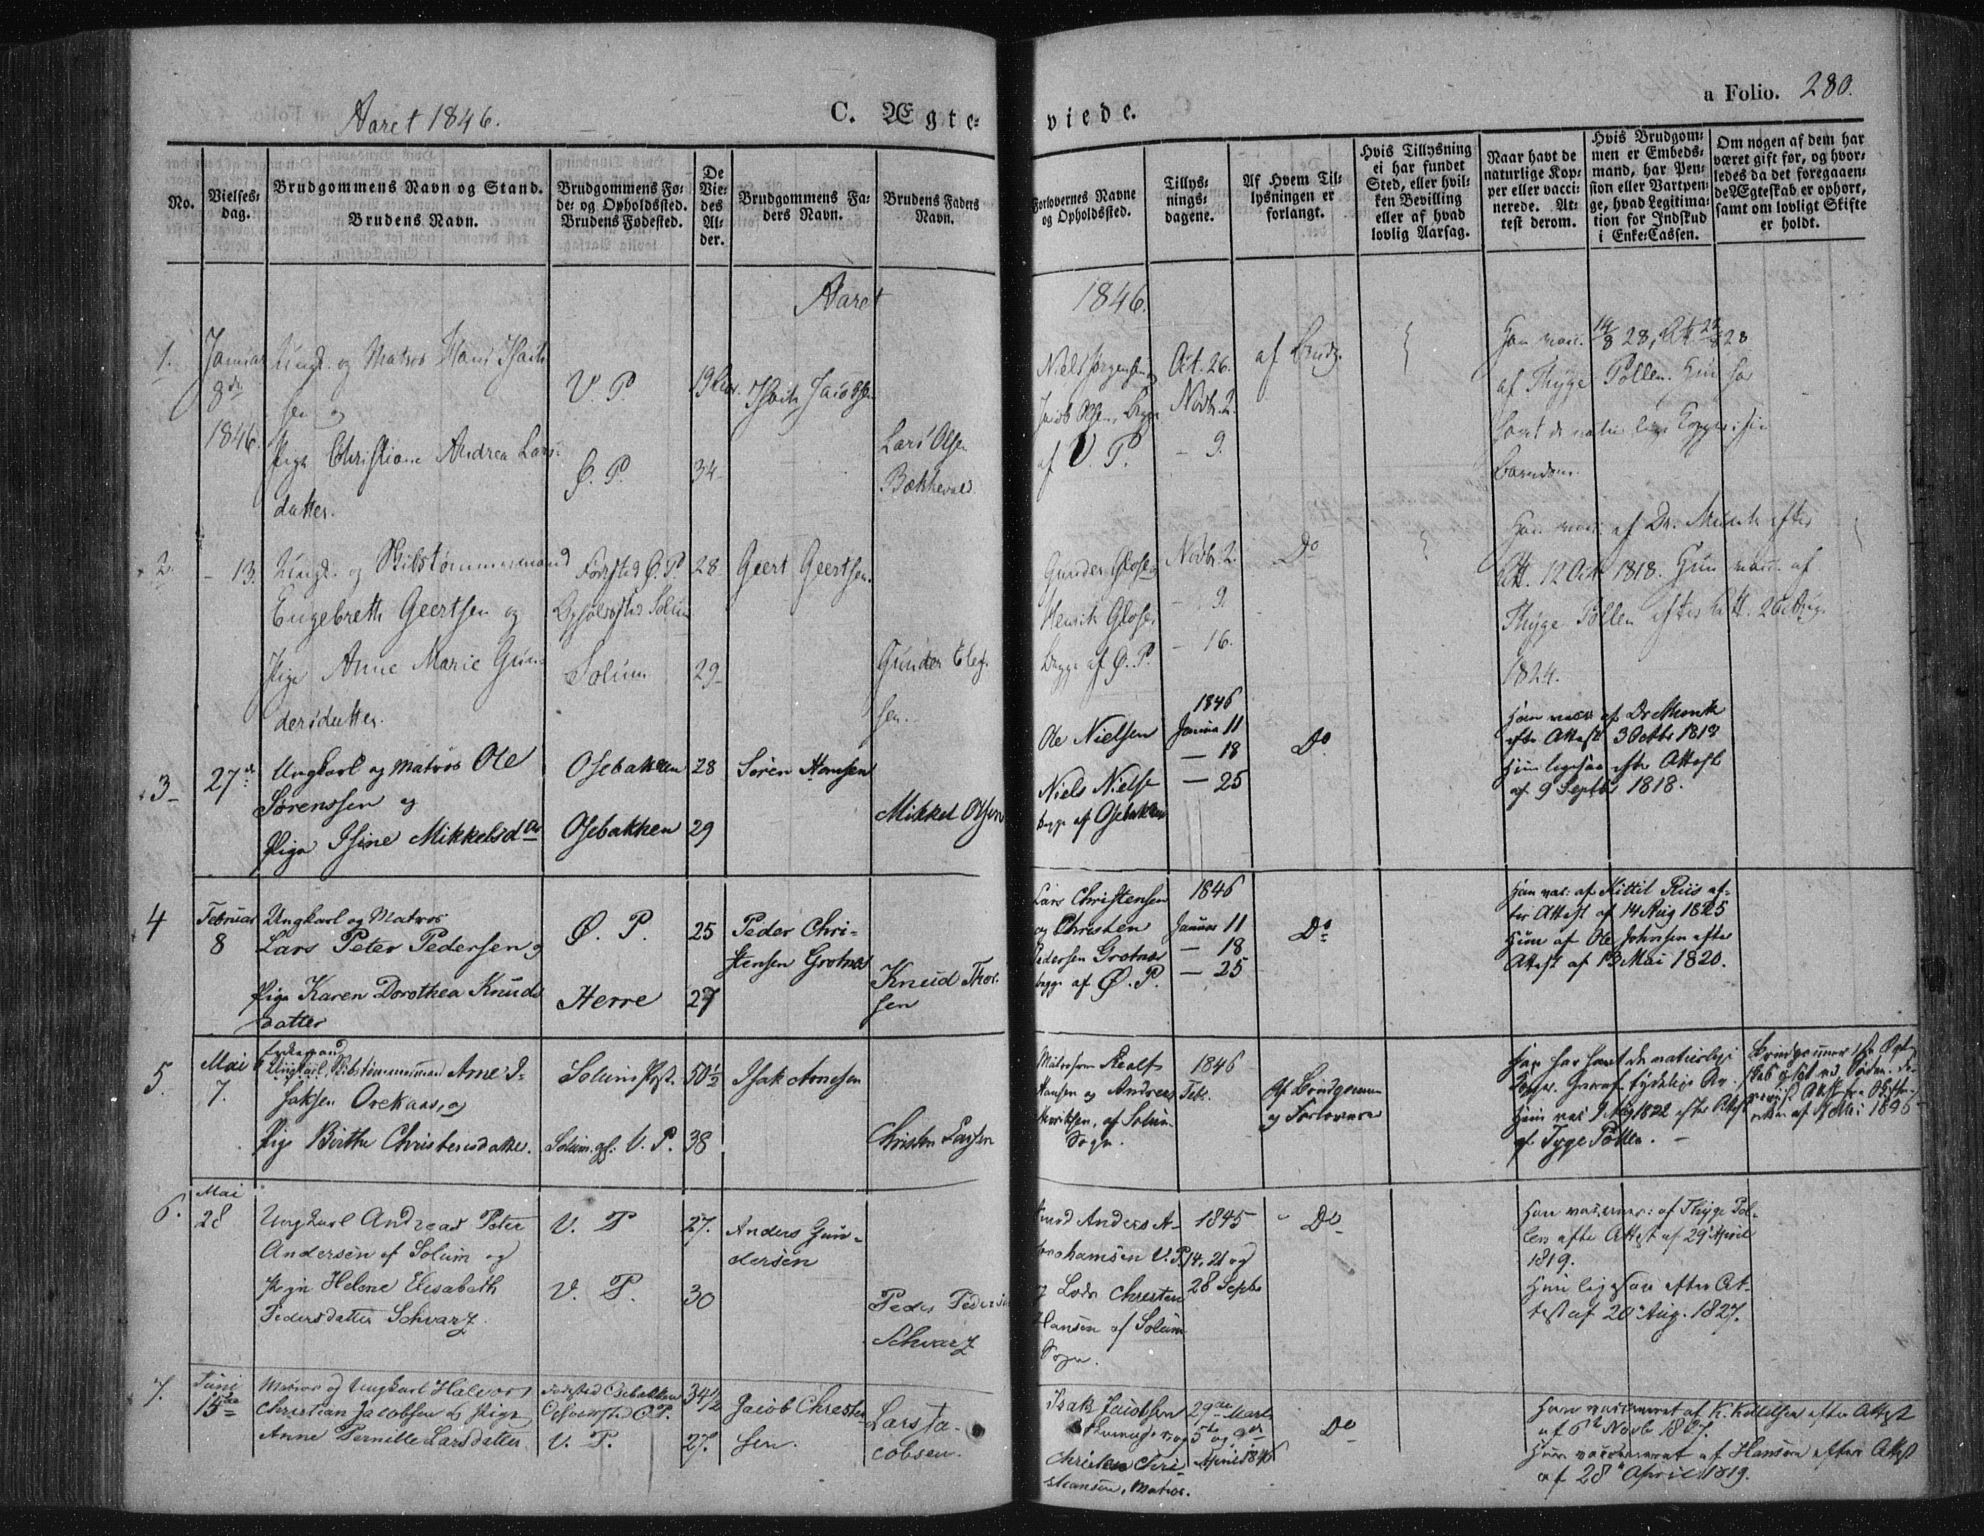 Aaret 1846.
C. Ægte-
viede.
a Folio. 280.
No.
Vielses-
dag.
Brudgommens Navn og Stand.
Brudens Navn.
Brudgommens Fø-
de- og Opholdssted.
Brudens Fødested.
De
Vie-
des
Al-
der.
Brudgommens Fa-
ders Navn.
Brudens Faders
Navn.
Forlovernes Navne
og Opholdssted.
Tillys-
nings-
dagene.
Af Hvem Til-
lysningen er
forlangt.
Hvis Tillysning
ei har fundet
Sted, eller hvil-
ken Bevilling
eller af hvad
lovlig Aarsag.
Naar havt de
naturlige Kop-
per eller vacci-
nerede. At-
test derom.
Hvis Brudgom-
men er Embeds-
mand, har Pen-
sion eller Vartpen-
ge, hvad Legitima-
tion for Indskud
i Enke-Cassen.
Om nogen af dem har
været gift før, og hvor-
ledes da det foregaaen-
de Ægteskab er ophørt,
samt om lovligt Skifte
er holdt.
Aaret
1846.
1.
Januar
8de
1846.
Ungk. og Matros Hans Isach-
sen og
Pige Christiane Andrea Lars-
datter.
V. P.
Ø. P.
34
Isach Jacobsen
Lars Olsen
Niels Jørgensen
Jacob Olsen, begge
af V. P.
Oct. 26.
Novbr. 2.
— 9.
af Brudg.
Han vacc. 14/8 28,
af Thyge Pollen. Hun har
havt de naturlige Kopper i sin
Barndom.
2.
— 13.
Ungk. og Skibstømmermand
Engebreth Geertsen og
Pige Anne Marie Gun-
dersdatter.
Fødested Ø. P.
Opholdssted Solum
Solum
28
29
Geert Geertsen.
Gunder
sen.
Gunder
Henrik
begge af Ø. P.
Novbr. 2.
— 9.
— 16.
Do
Han vacc. af Dr. Munk efter
Att. 12 Oct 1818. Hun vacc. af
Thyge Pollen efter Att. 26 Aug.
1824.
3
27de
Ungkarl og Matros Ole
Sørenssen og
Pige Isine Mikkelsdtr
Osebakken
Osebakken
28
29
Søren Hansen
Mikkel Olsen
Ole Nielsen
Niels Nielse
begge af Osebakken
1846
Januar 11
— 18
— 25
Do
Han vacc af Dr Munk
efter Attest 3 Octbr 1818
Hun ligesaa efter Attest
af 9 Septbr 1818.
4
Februar
8
Ungkarl og Matros
Lars Peter Pedersen og
Pige Karen Dorothea Knuds
datter
Ø. P.
Herre
25
27
Peder Chri-
stensen Grotnæs
Knud Thor-
sen
Lars Christensen
og Christen
Pedersen Grotnæs
begge af Ø. P.
1846
Januar 11
— 18
— 25
Do
Han vac: af Kittil Riis af-
ter Attest af 14 Aug 1825
Hun af Ole Johnsen efter
Attest af 13 Mai 1820.
5.
Mai
7.
Enkemand
Skibstømmermand Arne I-
saksen Orekaas, og
Pige Birthe Christensdatter.
Solum
Solum. V. P.
50½
38
Isak Arnesen
Christen Larsen
Hansen og Andreas
Henriksen, af Solum
Sogn.
1846
Febr.
Af Brudgommen
og Forloverne
Han har havt de naturlige
Kopper, hvoraf tydelige Ar.
Hun vac 9 Aug 1822 efter Attest
af Tyge Pollen. —
6.
Mai
28
Ungkarl Andreas Peter
Andersen af Solum og
Pige Helene Elisabeth
Pedersdatter Schvarz.
V. P
V. P.
27.
30
Anders Gun-
dersen
Peder Pedersen
Schvarz
Anders A-
brahamsen V. P.
og Lods Christen
Hansen af Solum
Sogn.
1845
14, 21 og
28 Septbr
Do
Han vaccner: af Thyge Pol-
len efter Attest af 29 April
1819.
Hun ligesaa efter At-
test af 20 Aug. 1827.
7.
Juni
15de
Matros og Ungkarl Halvor
Christian Jacobsen og Pige
Anne Pernille Larsdatter
Fødested Osebakken
Opholdssted Ø P.
V. P.
34½
27.
Jacob Christen
sen.
Lars Ja-
cobsen.
Isak Jacobsen
Christen Chri-
stiansen, Matros.
29de Marts
5te og 9de
April 1846
Do
Han vaccineret af K. Kittilsen efter Attest
af 6te Novb 1807.
Hun vaccineret af Hansen efter Attest
af 28 April 1819.